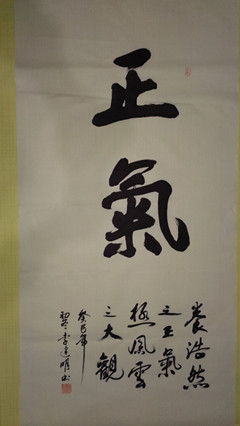 正氣
養浩然
之正氣
極風雲
之大觀
癸巳年